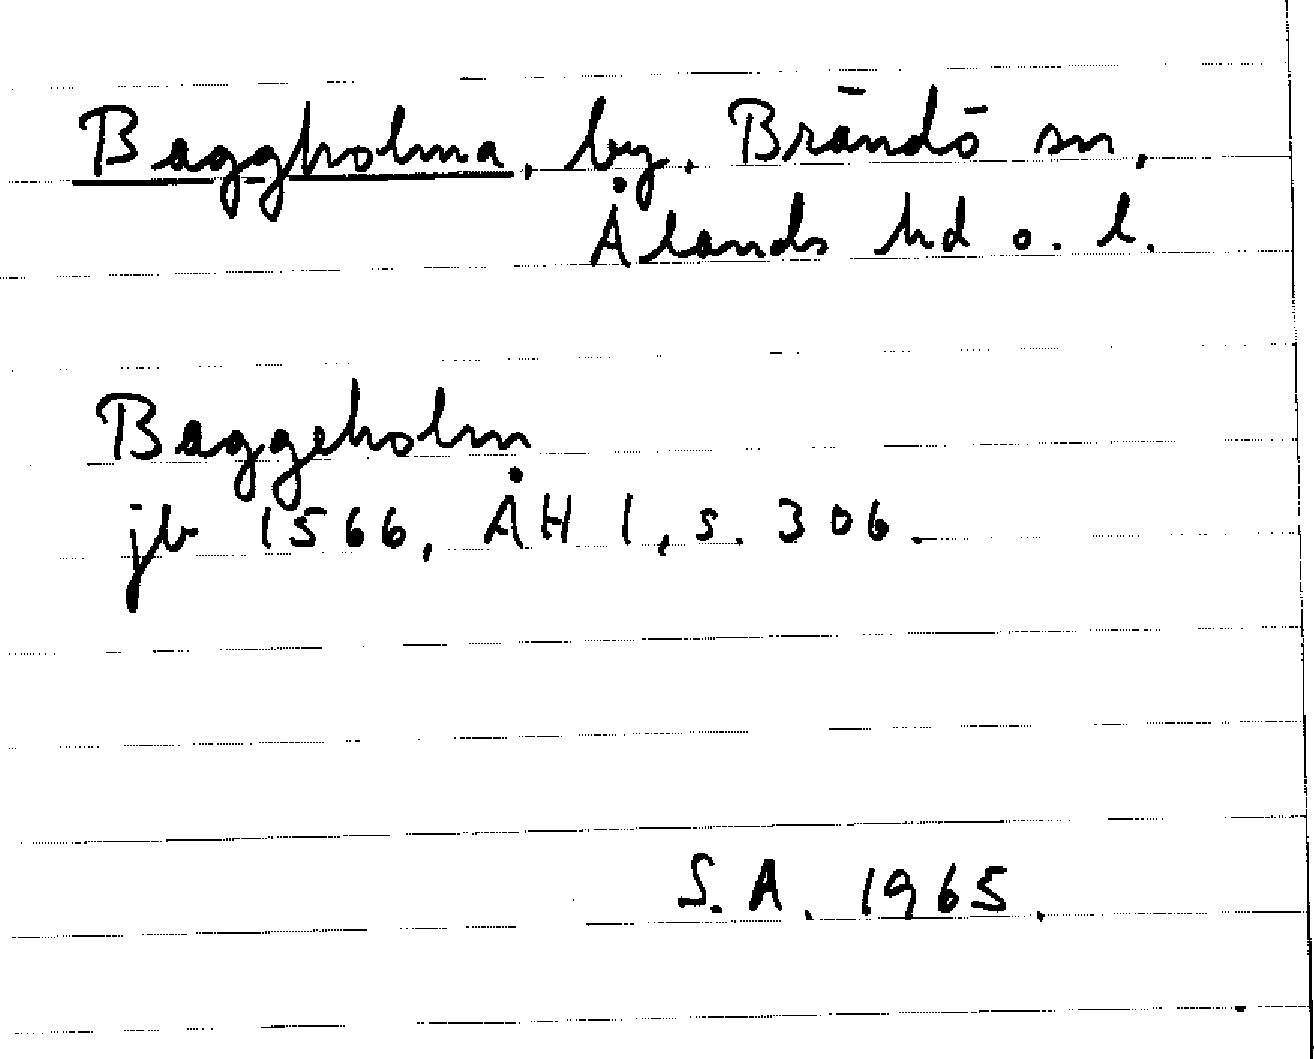 Baggholma, by, Brändö sn,
Ålands hd o. l.
Baggeholm
jb 1566, ÅH 1, s. 306.
S.A. 1965.